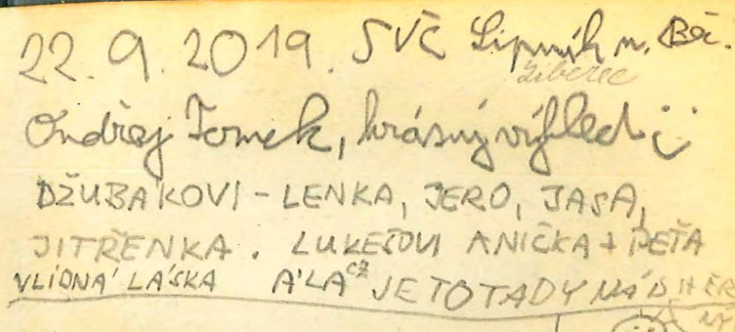 22.9.2019. SVČ Lipník n. Beč.
Liberec
Ondřej Tomek, krásný výhled :)
DŽUBÁKOVI - LENKA, JERO, JASA,
JITŘENKA. LUKEŠOVI ANIČKA + PEŤA
VLÍDNÁ LÁSKA A'LA CZ JE TO TADY NÁDHER
NÝ